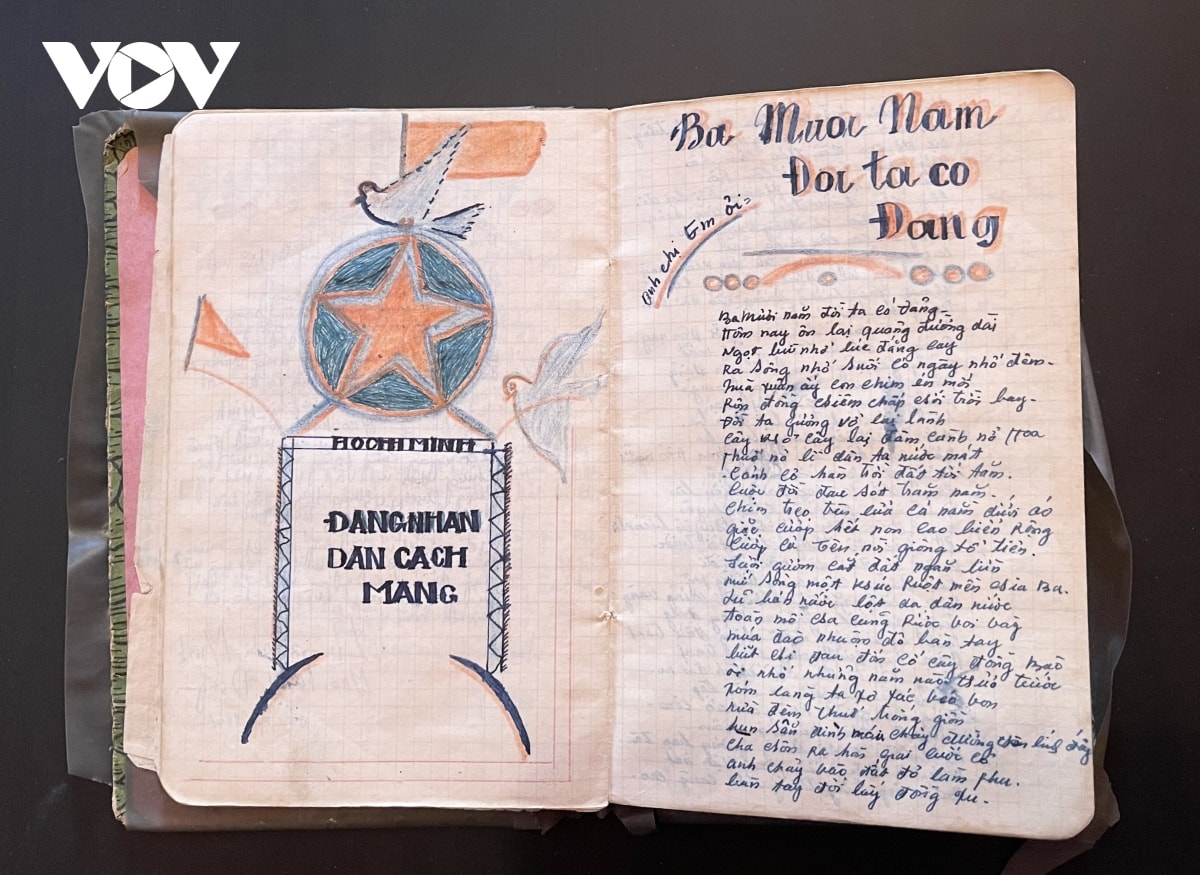 VOV
HO CHI MINH
ĐANG NHAN
DAN CACH
MANG
Ba Mươi Nam
Đơi ta co
Đang
Anh chị Em ơi =
Ba mươi năm đời ta có Đảng
Hôm nay ôn lại quảng đường dài
Ngọt bùi nhớ lúc đắng cay
Ra sông nhớ suối có ngày nhớ đêm
mùa xuân ấy con chim én mới
Rộn đồng chiêm chấp chới trời bay
Đời ta gương vỡ lại lành
cây khô cây lại đâm cành nở Hoa
Thuở nô lệ dân ta nước mất
Cảnh cơ hàn trời đất tối tăm
cuộc đời đau sót trăm năm
chim treo trên lửa cá nằm dưới
giặc cướp hết non cao biển rộng
cướp cả tên nòi giống tổ tiên
Lưỡi gươm cắt đất ngăn
núi sông một khúc ruột chia Ba
Lũ bán nước lột da dân nước
toàn mồ cha cúng rước voi
múa đao nhuộm đỏ bàn tay
ôi nhớ những năm nào thuở trước
xóm làng ta xơ xác
nửa đêm thuế trống dồn
cha chốn ra hòn gai cuốc
anh chạy vào đất đỏ làm phu
bán tay đổi lấy đồng xu